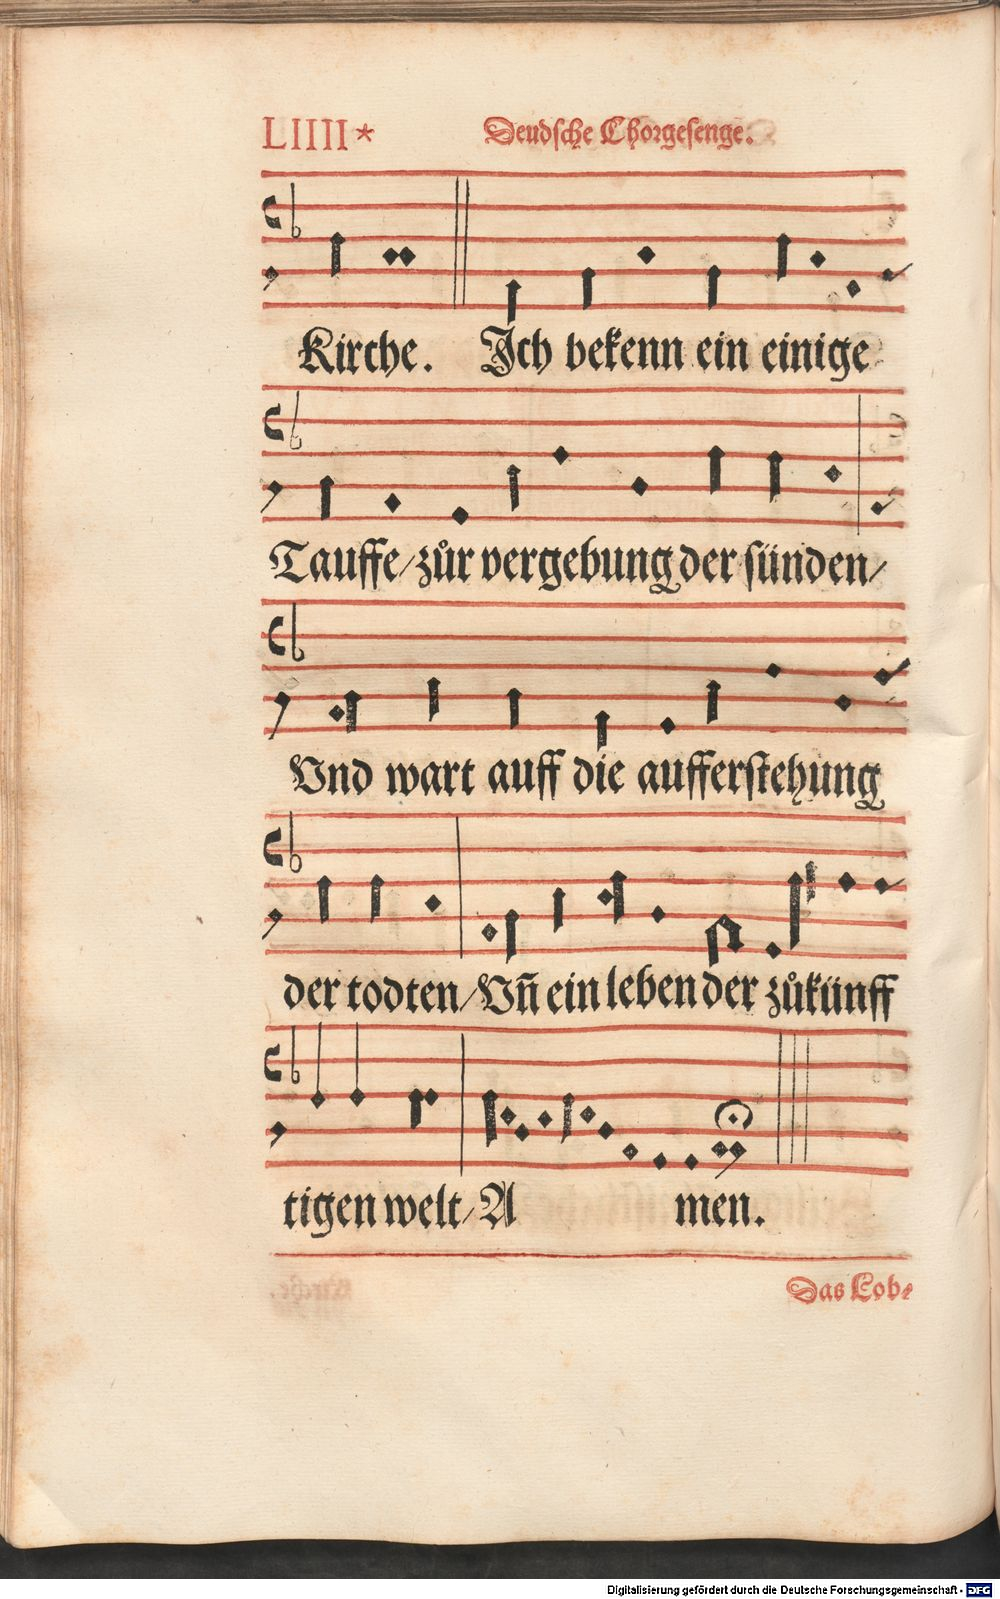 LIIII* Deudsche Chorgesenge.
Kirche. Ich bekenn ein einige
Tauffe/zůr vergebung der sünden/
Vnd wart auff die aufferstehung
der todten/Vñ ein leben der zůkünff
tigen welt/A men.
Das Lob⸗
Digitalisierung gefördert durch die Deutsche Forschungsgemeinschaft - DFG